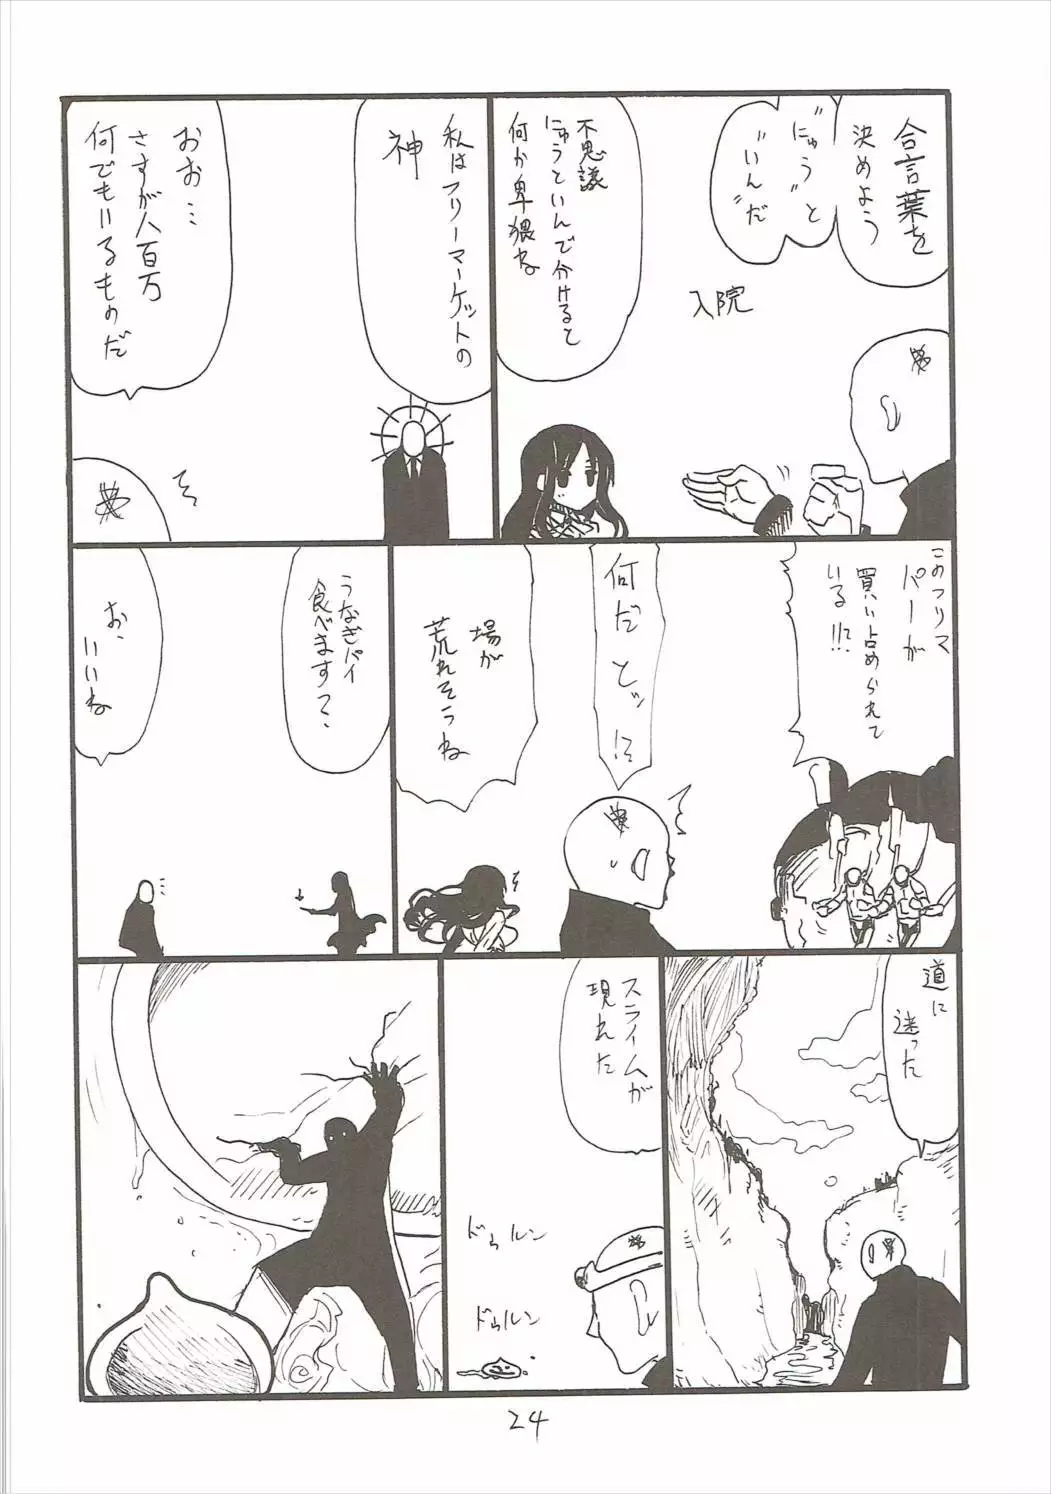 合言葉を
決めよう
"にゅう"と
"いんだ"
入院
不思議
にゅうといんで分けると
何か卑猥ね
私はフリーマーケットの
神
おお…
さすが八百万
何でもいるものだ
このフリマ
パーが
買い占められて
いる!!?
何だとッ!?
場が
荒れそうね
うなぎパイ
食べます?
お、
いいね
道に
迷った
スライムが
現れた
ドゥルン
ドゥルン
24